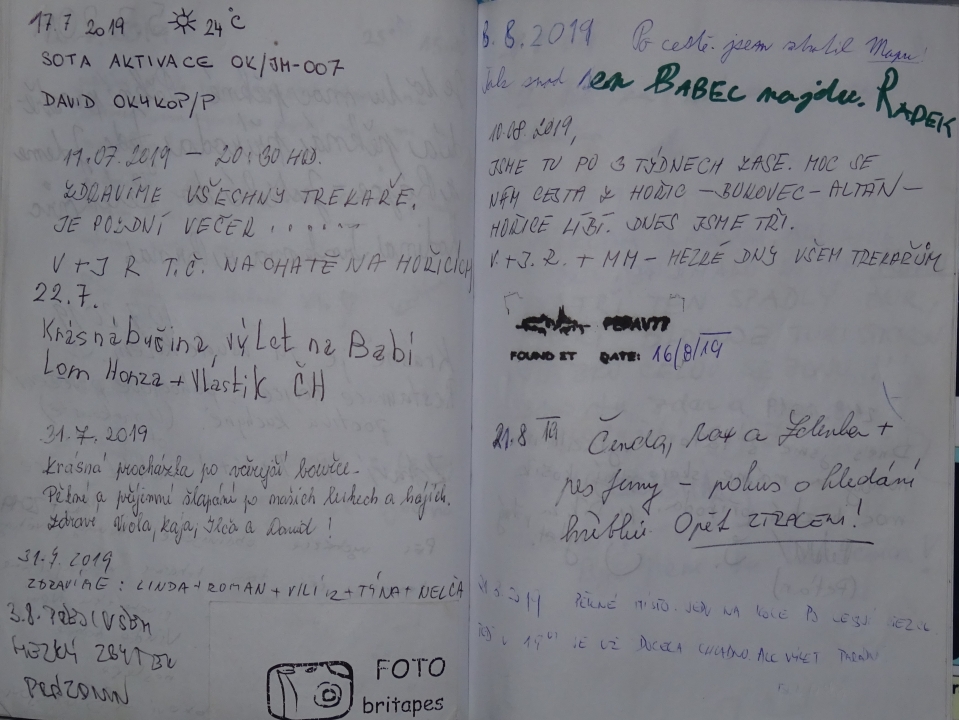 17.7 2019 24°C
SOTA AKTIVACE OK/JM-007
DAVID OK4KOP/P
19.07.2019 – 20:30 HOD.
ZDRAVÍME VŠECHNY TREKAŘE.
JE POZDNÍ VEČER ......
V + J R T.Č. NA CHATĚ NA HOŘICÍCH
22.7.
Krásná bučina, výlet na Babí
Lom Honza + Vlastik ČH
31.7. 2019
Krásná procházka po včerejší bouřce.
Pěkné a příjemné šlapání po našich luzích a hájích.
Zdraví Viola, Kaja, Ilča a David!
31.7. 2019
ZDRAVÍME: LINDA + ROMAN + VILÍK + TÝNA + NELČA
3.8.
HEZKÝ ZBYTEK
FOTO
britapes
8.8.2019 Po cestě jsem ztratil Mapu!
Tak snad ten BABEC najdu. RADEK
10.08.2019,
JSME TU PO 3 TÝDNECH ZASE. MOC SE
NÁM CESTA Z HOŘIC – BUKOVEC – ALTÁN –
HOŘICE LÍBÍ. DNES JSME TŘI.
V.+J.R. + MM – HEZKÉ DNY VŠEM TREKAŘŮM
FOUND IT DATE: 16/8/19
21.8 19 Čenda, Max a Zdenka +
pes Jenny – pokus o hledání
hříbků. Opět ZTRACENI!
PĚKNÉ MÍSTO. JEDU NA KOLE
V 19 JE UŽ DOCELA CHLADNO. ALE VÝLET